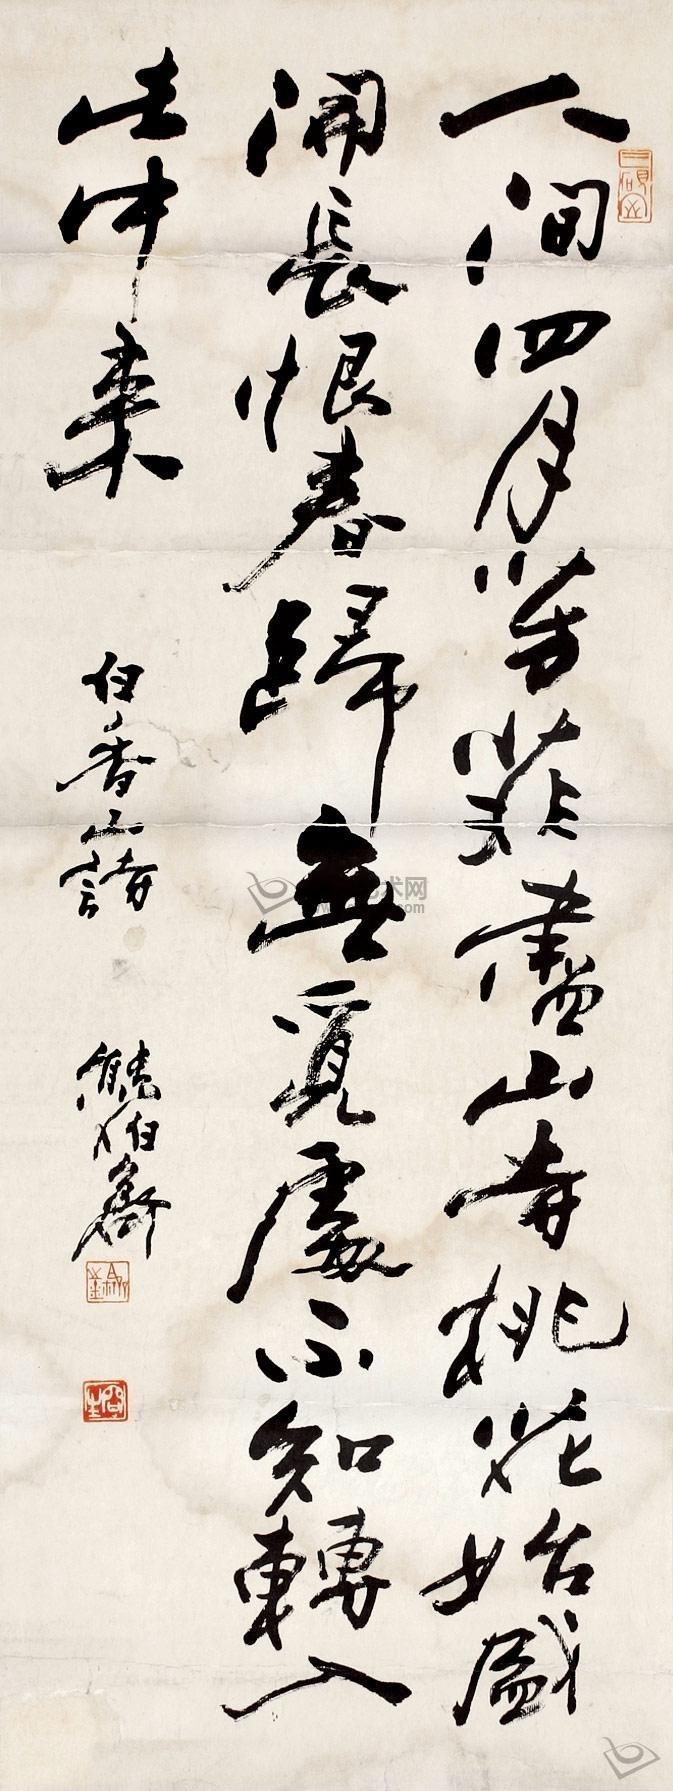 人间四月芳菲盡山寺桃花始盛
開長恨春歸無覓處不知轉入
此中来
白香山詩
熊伯齊